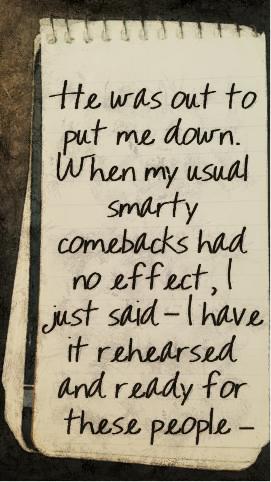 He was out to
put me down.
When my usual
smarty
comebacks had
no effect, I
just said – I have
it rehearsed
and ready for
these people –